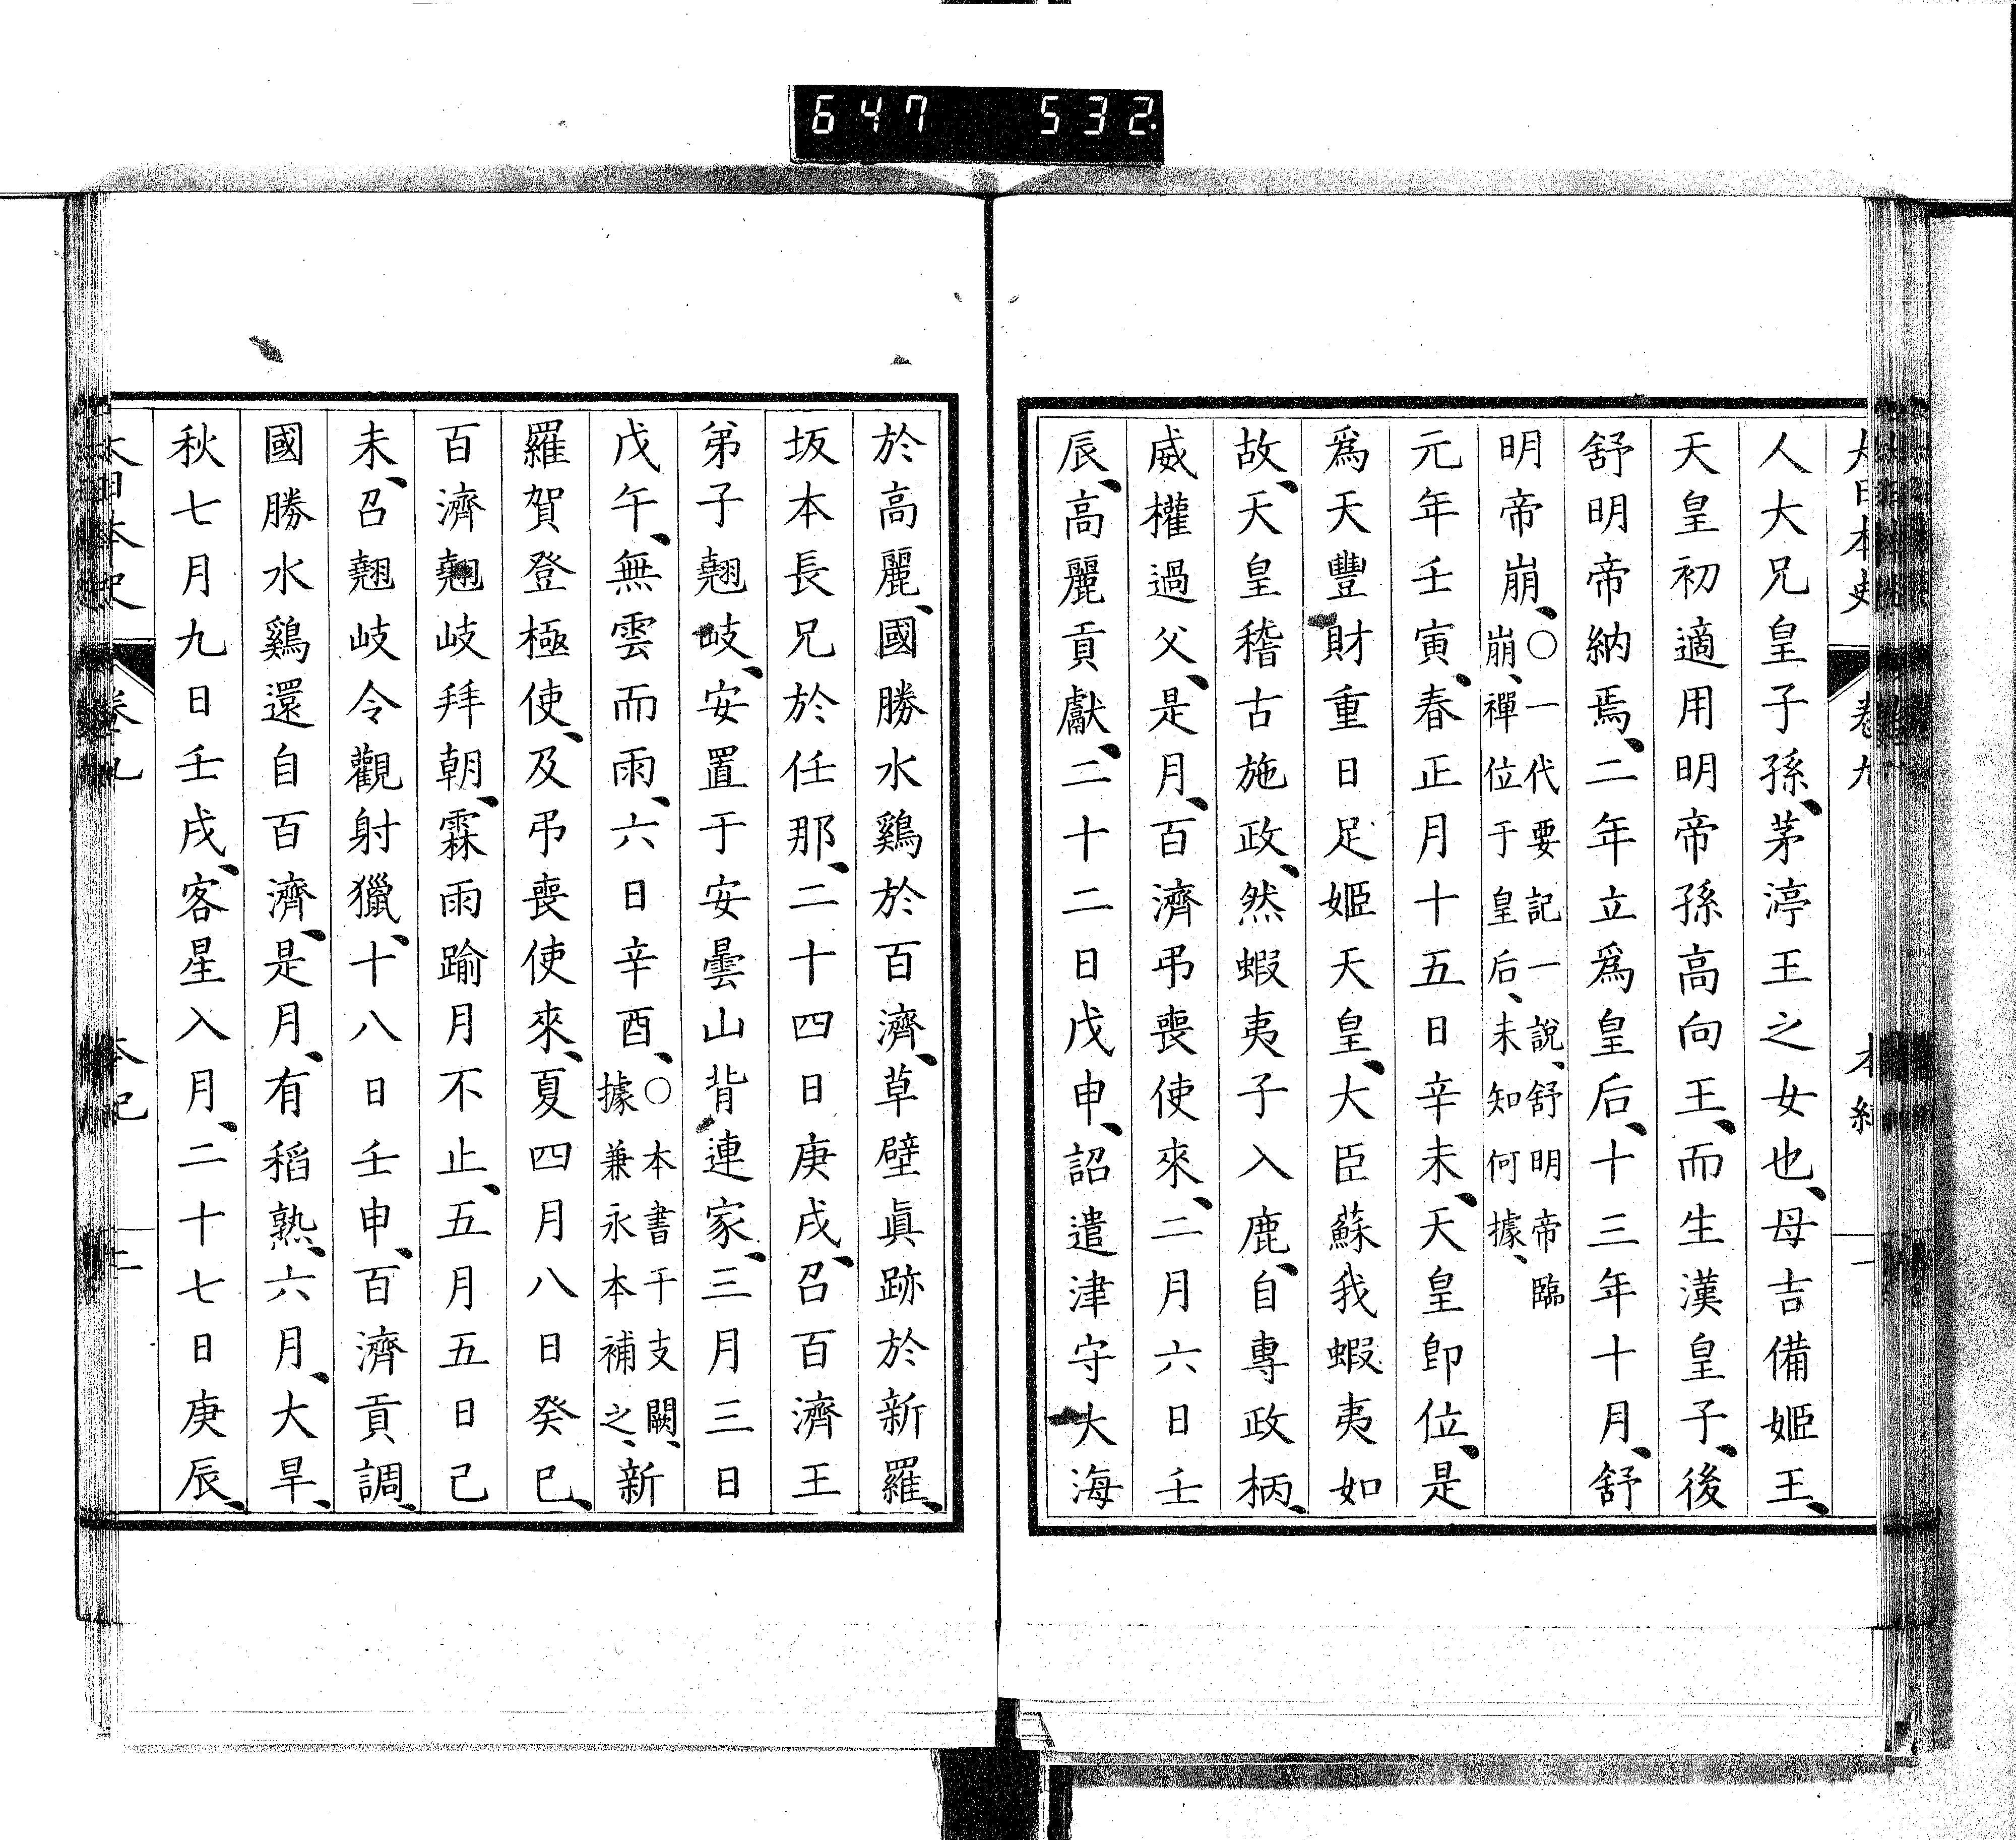 647 532.
大日本史 卷九 本紀 一
人大兄皇子孫、茅渟王之女也、母吉備姬王、
天皇初適用明帝孫高向王、而生漢皇子、後
舒明帝納焉、二年立爲皇后、十三年十月、舒
明帝崩、○一代要記一說、舒明帝臨崩、禪位于皇后、未知何據、
元年壬寅、春正月十五日辛未、天皇卽位、是
爲天豐財重日足姬天皇、大臣蘇我蝦夷如
故、天皇稽古施政、然蝦夷子入鹿、自專政柄、
威權過父、是月、百濟弔喪使來、二月六日壬
辰、高麗貢獻、二十二日戊申、詔遣津守大海
於高麗、國勝水鷄於百濟、草壁眞跡於新羅、
坂本長兄於任那、二十四日庚戌、召百濟王
弟子翹岐、安置于安曇山背連家、三月三日
戊午、無雲而雨、六日辛酉、○本書干支闕、據兼永本補之、新
羅賀登極使、及弔喪使來、夏四月八日癸巳、
百濟翹岐拜朝、霖雨踰月不止、五月五日己
未、召翹岐令觀射獵、十八日壬申、百濟貢調、
國勝水鷄還自百濟、是月、有稻熟、六月、大旱、
秋七月九日壬戌、客星入月、二十七日庚辰、
大日本史 卷九 本紀